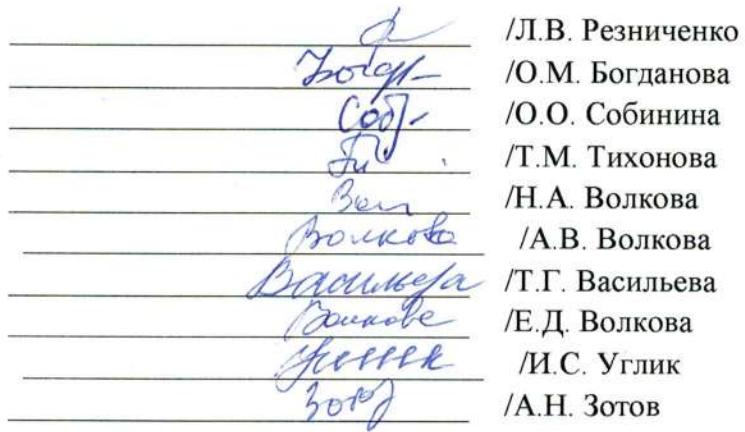 /Л.В. Резниченко
Богд /О.М. Богданова
Соб /О.О. Собинина
/Т.М. Тихонова
Вол /Н.А. Волкова
Волкова /А.В. Волкова
Васильева /Т.Г. Васильева
Волкова /Е.Д. Волкова
Углик /И.С. Углик
Зотов /А.Н. Зотов